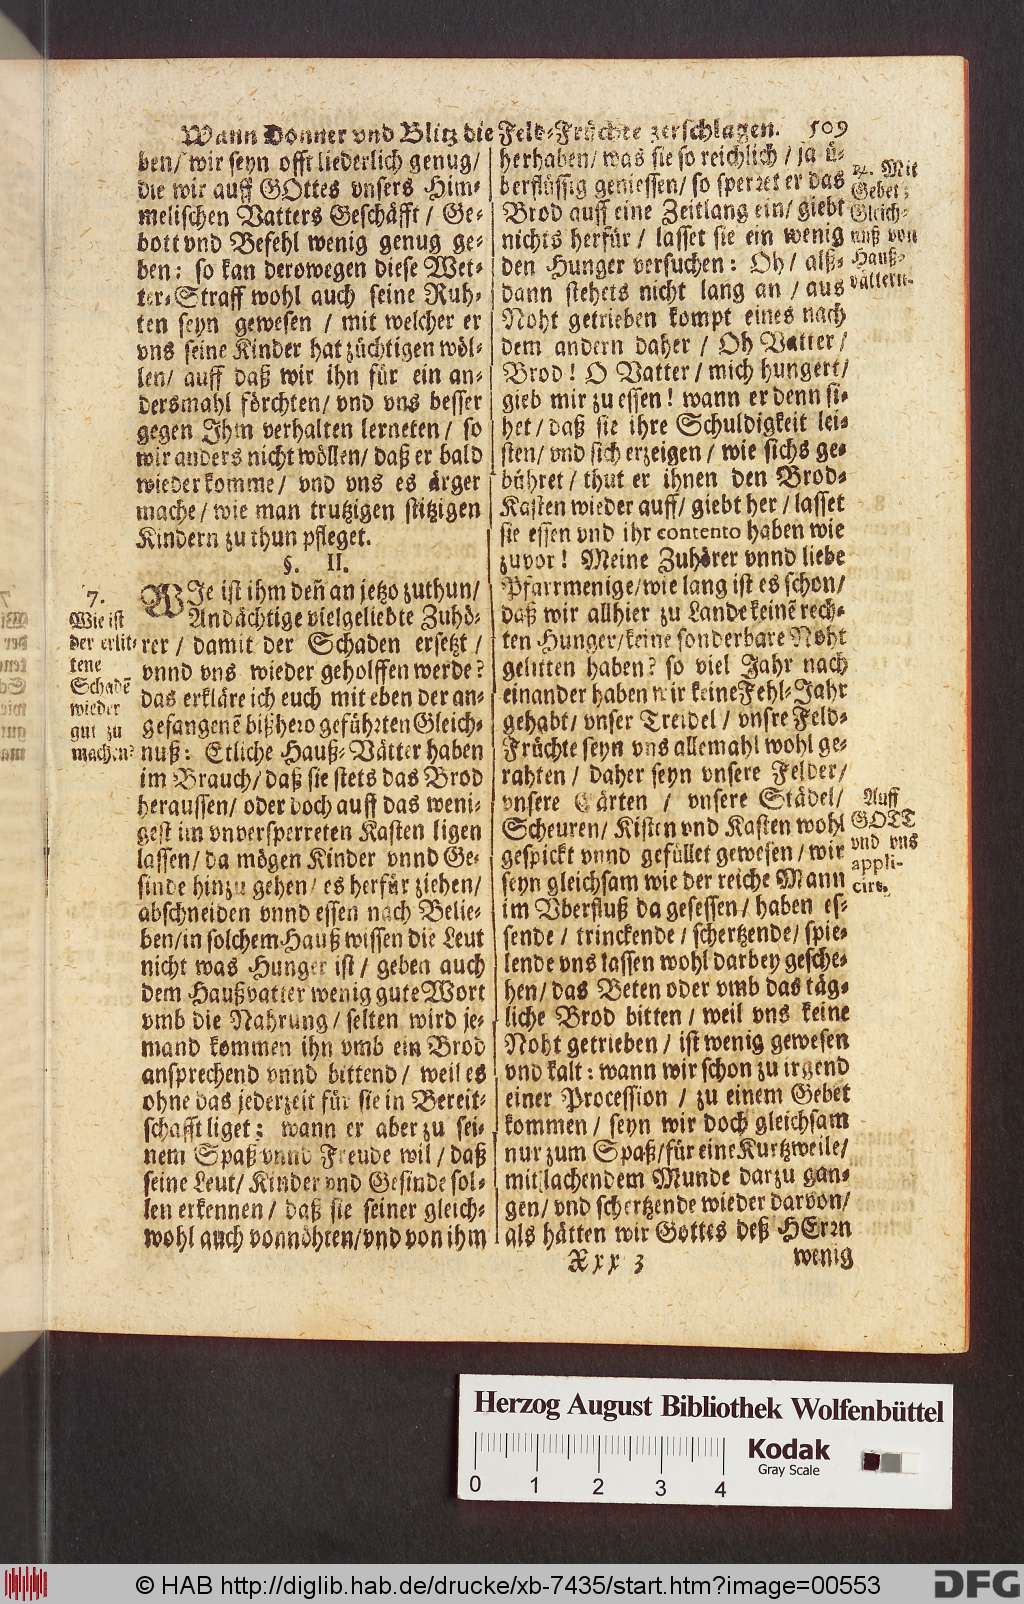 Wann Donner vnd Blitz die Feld-Früchte zerschlagen. 509
ben/ wir seyn offt liederlich genug/
die wir auff GOttes vnsers Him-
melischen Vatters Geschäfft / Ge-
bott vnd Befehl wenig genug ge-
ben: so kan derowegen diese Wet-
ter-Straff wohl auch seine Ruh-
ten seyn gewesen / mit welcher er
vns seine Kinder hat züchtigen wöl-
len/ auff daß wir ihn für ein an-
dersmahl förchten/ vnd vns besser
gegen Ihm verhalten lerneten/ so
wir anders nicht wöllen/ daß er bald
wieder komme/ vnd vns es ärger
mache/ wie man trutzigen stitzigen
Kindern zu thun pfleget.
§. II.
7.
Wie ist
der erlit-
tene
Schadē
wieder
gut zu
machen?
WIe ist ihm den̄ an jetzo zuthun/
Andächtige vielgeliebte Zuhö-
rer / damit der Schaden ersetzt /
vnnd vns wieder geholffen werde?
das erkläre ich euch mit eben der an-
gefangenē bißhero geführten Gleich-
nuß: Etliche Hauß-Vätter haben
im Brauch/ daß sie stets das Brod
heraussen/ oder doch auff das weni-
gest im vnversperreten Kasten ligen
lassen/ da mögen Kinder vnnd Ge-
sinde hinzu gehen/ es herfür ziehen/
abschneiden vnnd essen nach Belie-
ben/ in solchem Hauß wissen die Leut
nicht was Hunger ist / geben auch
dem Haußvatter wenig gute Wort
vmb die Nahrung/ selten wird je-
mand kommen ihn vmb ein Brod
ansprechend vnnd bittend/ weil es
ohne das jederzeit für sie in Bereit-
schafft liget; wann er aber zu sei-
nem Spaß vnnd Freude wil/ daß
seine Leut/ Kinder vnd Gesinde sol-
len erkennen / daß sie seiner gleich-
wohl auch vonnöhten/ vnd von ihm
herhaben/ was sie so reichlich / ja ü-
berflüssig geniessen/ so sperret er das
Brod auff eine Zeitlang ein/ giebt
nichts herfür / lasset sie ein wenig
den Hunger versuchen: Oh/ alß-
dann stehets nicht lang an / aus
Noht getrieben kompt eines nach
dem andern daher / Oh Vatter/
Brod! O Vatter / mich hungert/
gieb mir zu essen! wann er denn si-
het/ daß sie ihre Schuldigkeit lei-
sten/ vnd sich erzeigen/ wie sichs ge-
bühret/ thut er ihnen den Brod-
Kasten wieder auff/ giebt her/ lasset
sie essen vnd ihr contento haben wie
zuvor! Meine Zuhörer vnnd liebe
Pfarrmenige/ wie lang ist es schon/
daß wir allhier zu Lande keinē rech-
ten Hunger/ keine sonderbare Noht
gelitten haben? so viel Jahr nach
einander haben wir keine Fehl-Jahr
gehabt/ vnser Treidel/ vnsre Feld-
Früchte seyn vns allemahl wohl ge-
rahten / daher seyn vnsere Felder/
vnsere Gärten / vnsere Städel/
Scheuren/ Kisten vnd Kasten wohl
gespickt vnnd gefüllet gewesen/ wir
seyn gleichsam wie der reiche Mann
im Vberfluß da gesessen/ haben es-
sende / trinckende / schertzende/ spie-
lende vns lassen wohl darbey gesche-
hen/ das Beten oder vmb das täg-
liche Brod bitten / weil vns keine
Noht getrieben/ ist wenig gewesen
vnd kalt: wann wir schon zu irgend
einer Procession / zu einem Gebet
kommen / seyn wir doch gleichsam
nur zum Spaß/ für eine Kurtzweile/
mit lachendem Munde darzu gan-
gen/ vnd schertzende wieder darvon/
als hätten wir Gottes deß HErrn
Mit
Gebet;
Gleich-
nuß von
Hauß-
vättern.
Auff
GOTT
vnd vns
appli-
cirt.
Xxx 3
wenig
Herzog August Bibliothek Wolfenbüttel
0 1 2 3 4
Kodak
Gray Scale
© HAB http://diglib.hab.de/drucke/xb-7435/start.htm?image=00553
DFG